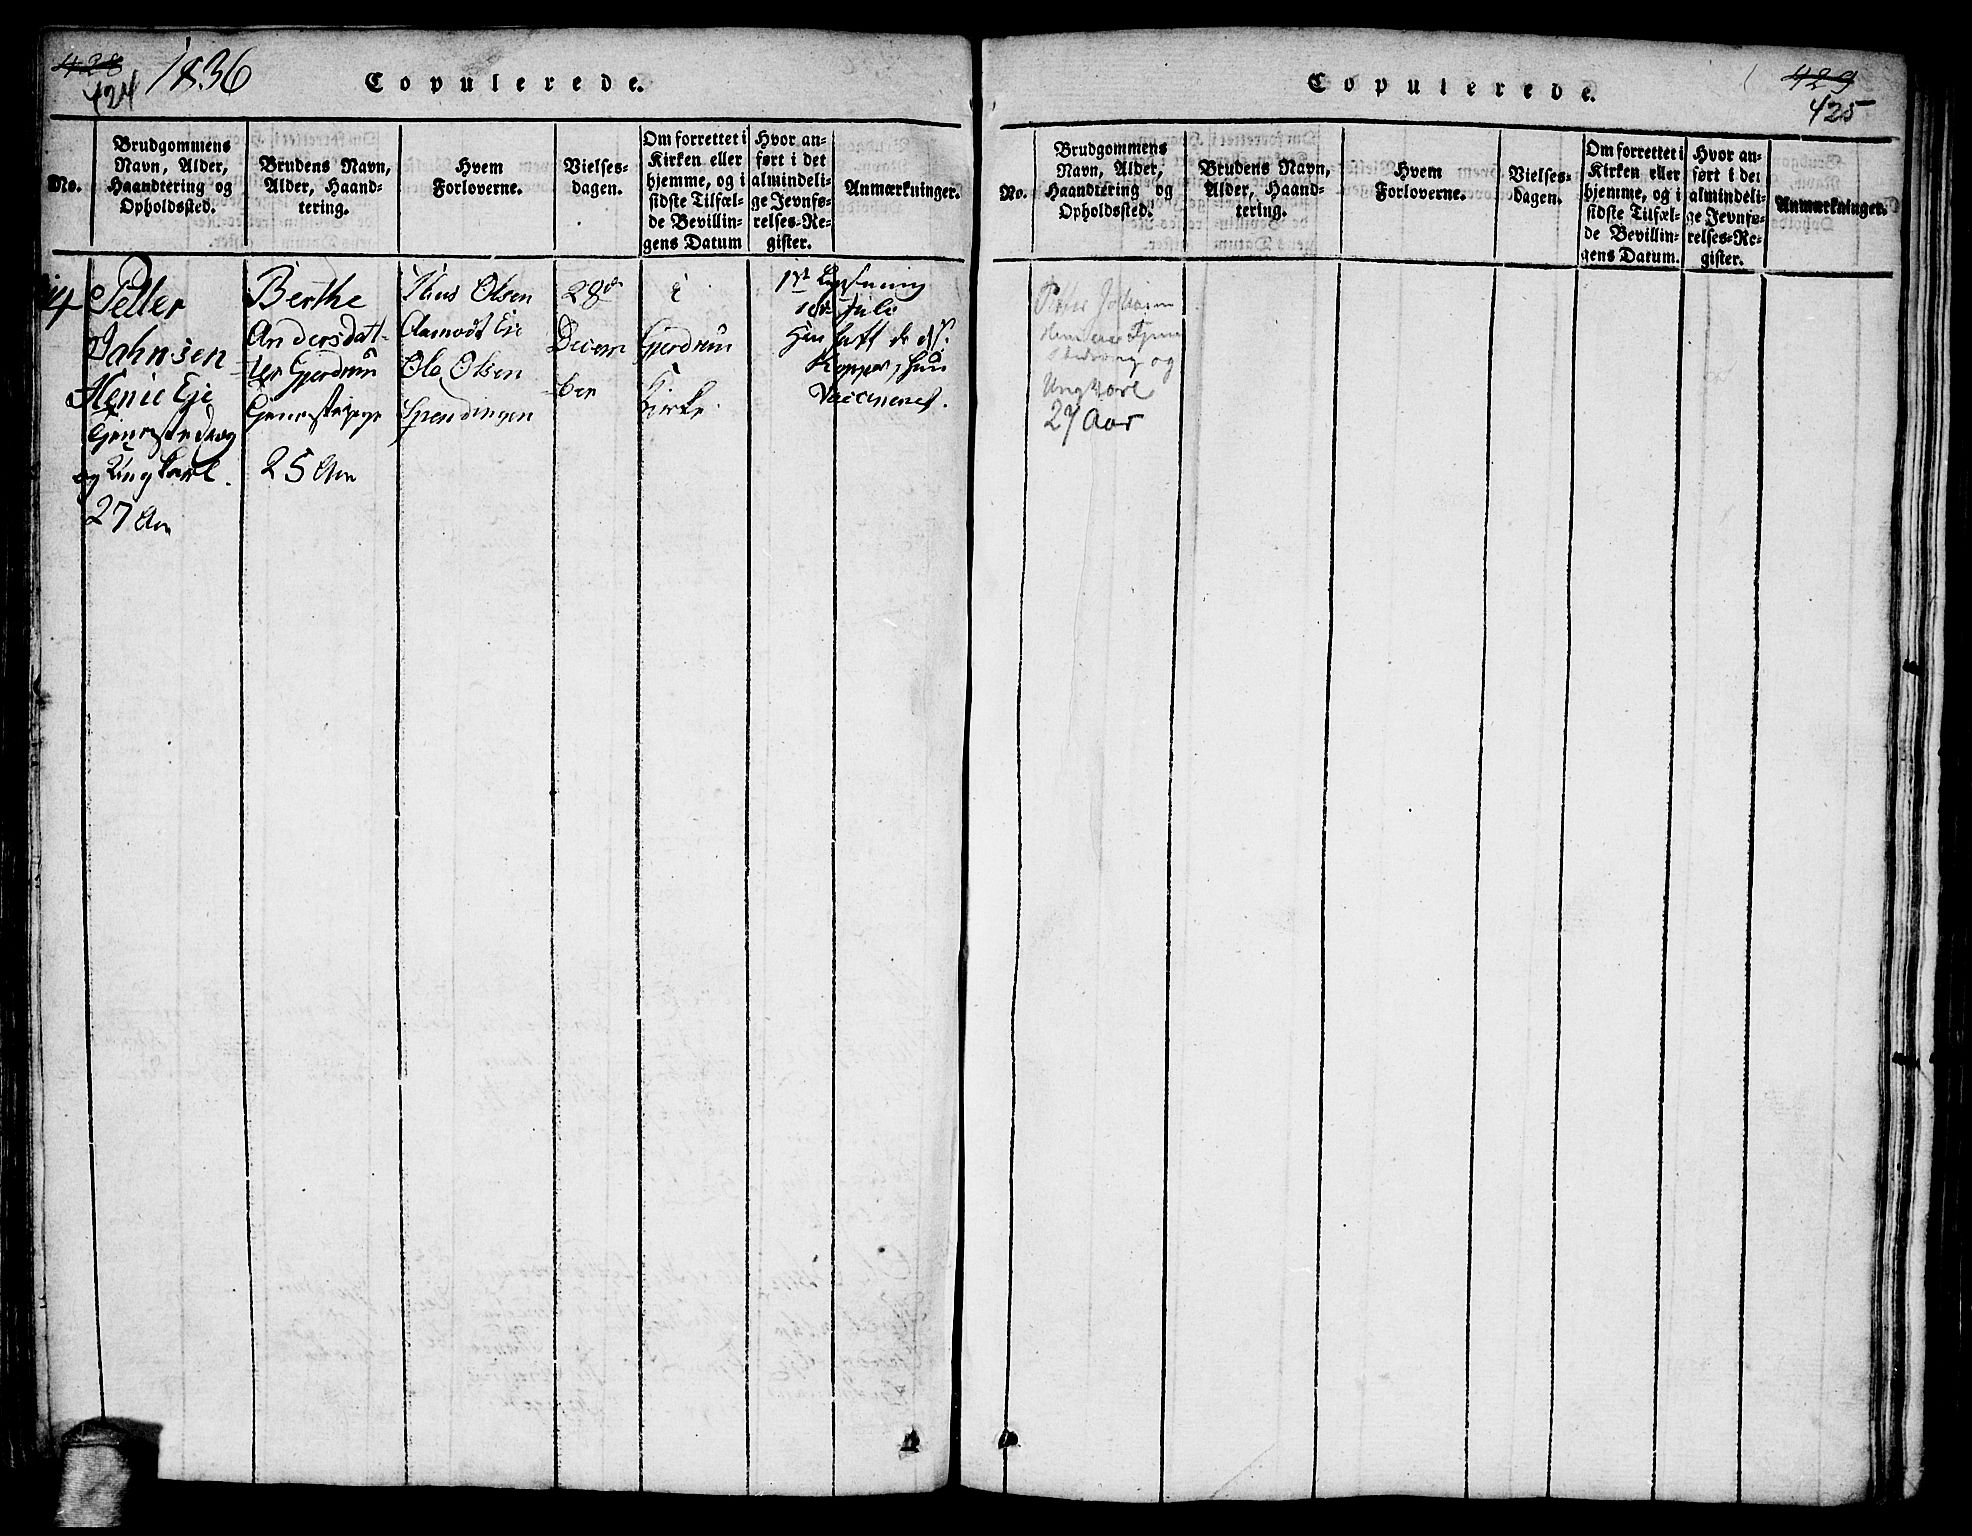 428
424
1836
Copulerede.
No.
Brudgommens
Navn, Alder,
Haandtering og
Opholdssted.
Brudens Navn,
Alder, Haand-
tering.
Hvem
Forloverne.
Vielses-
dagen.
Om forrettet i
Kirken eller
hjemme, og i
sidste Tilfæl-
de Bevillin-
gens Datum
Hvor an-
ført i det
almindeli-
ge Jevnfø-
relses-Re-
gister.
Anmærkninger.
14
Petter
Johnsen
Henie Eje
og Ungkarl.
27 Aar
Berthe
Andersdat-
ter Gjerdrum
25 Aar
Olsen
Aamodt Eje
Ole Olsen
28de
Decem
ber
i
Gjerdrum
Kirke.
1st Lysning
Juli
Han haft de
Kopper, hun
Vaccineret.
Copulerede.
429
425
No.
Brudgommens
Navn, Alder,
Haandtering og
Opholdssted.
Brudens Navn,
Alder, Haand-
tering.
Hvem
Forloverne.
Vielses-
dagen.
Om forrettet i
Kirken eller
hjemme, og i
sidste Tilfæl-
de Bevillin-
gens Datum.
Hvor an-
ført i det
almindeli-
ge Jevnfø-
relses-Re-
gister.
Anmærkninger.
og
Ungkarl
27 Aar